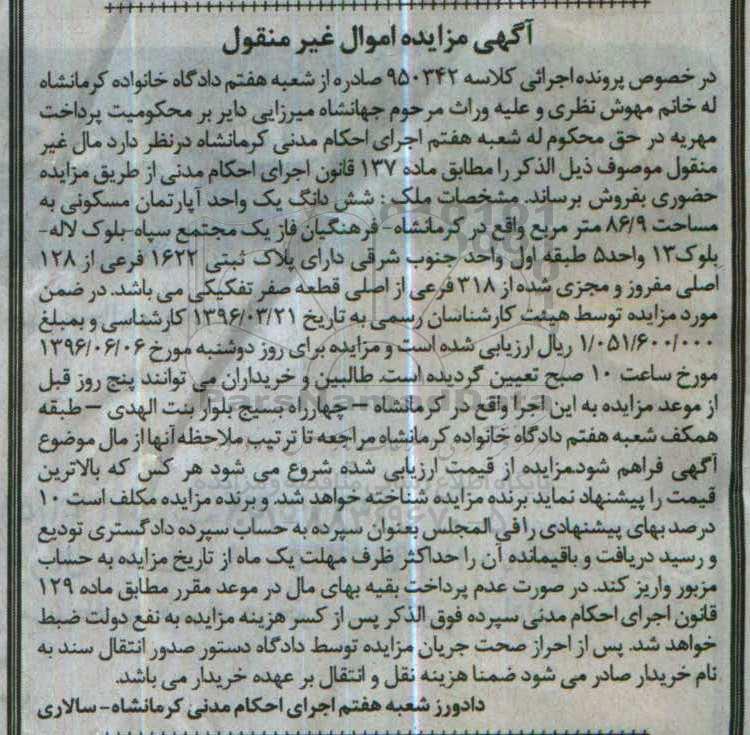 آگهی مزایده اموال غیر منقول
در خصوص پرونده اجرائی کلاسه ۹۵۰۳۴۲ صادره از شعبه هفتم دادگاه خانواده کرمانشاه
له خانم مهوش نظری و علیه وراث مرحوم جهانشاه میرزایی دایر بر محکومیت پرداخت
مهریه در حق محکوم له شعبه هفتم اجرای احکام مدنی کرمانشاه درنظر دارد مال غیر
منقول موصوف ذیل الذکر را مطابق ماده ۱۳۷ قانون اجرای احکام مدنی از طریق مزایده
حضوری بفروش برساند. مشخصات ملک : شش دانگ یک واحد آپارتمان مسکونی به
مساحت ۸۶/۹ متر مربع واقع در کرمانشاه- فرهنگیان فاز یک مجتمع سپاه-بلوک لاله-
بلوک۱۳ واحد۵ طبقه اول واحد جنوب شرقی دارای پلاک ثبتی ۱۶۲۲ فرعی از ۱۲۸
اصلی مفروز و مجزی شده از ۳۱۸ فرعی از اصلی قطعه صفر تفکیکی می باشد. در ضمن
مورد مزایده توسط هیئت کارشناسان رسمی به تاریخ ۱۳۹۶/۰۳/۲۱ کارشناسی و بمبلغ
۱/۰۵۱/۶۰۰/۰۰۰ ریال ارزیابی شده است و مزایده برای روز دوشنبه مورخ ۱۳۹۶/۰۶/۰۶
مورخ ساعت ۱۰ صبح تعیین گردیده است. طالبین و خریداران می توانند پنج روز قبل
از موعد مزایده به این اجرا واقع در کرمانشاه – چهارراه بسیج بلوار بنت الهدی – طبقه
همکف شعبه هفتم دادگاه خانواده کرمانشاه مراجعه تا ترتیب ملاحظه آنها از مال موضوع
آگهی فراهم شود.مزایده از قیمت ارزیابی شده شروع می شود هر کس که بالاترین
قیمت را پیشنهاد نماید برنده مزایده شناخته خواهد شد. و برنده مزایده مکلف است ۱۰
درصد بهای پیشنهادی را فی المجلس بعنوان سپرده به حساب سپرده دادگستری تودیع
و رسید دریافت و باقیمانده آن را حداکثر ظرف مهلت یک ماه از تاریخ مزایده به حساب
مزبور واریز کند. در صورت عدم پرداخت بقیه بهای مال در موعد مقرر مطابق ماده ۱۲۹
قانون اجرای احکام مدنی سپرده فوق الذکر پس از کسر هزینه مزایده به نفع دولت ضبط
خواهد شد. پس از احراز صحت جریان مزایده توسط دادگاه دستور صدور انتقال سند به
نام خریدار صادر می شود ضمنا هزینه نقل و انتقال بر عهده خریدار می باشد.
دادورز شعبه هفتم اجرای احکام مدنی کرمانشاه- سالاری
ParsNamadData